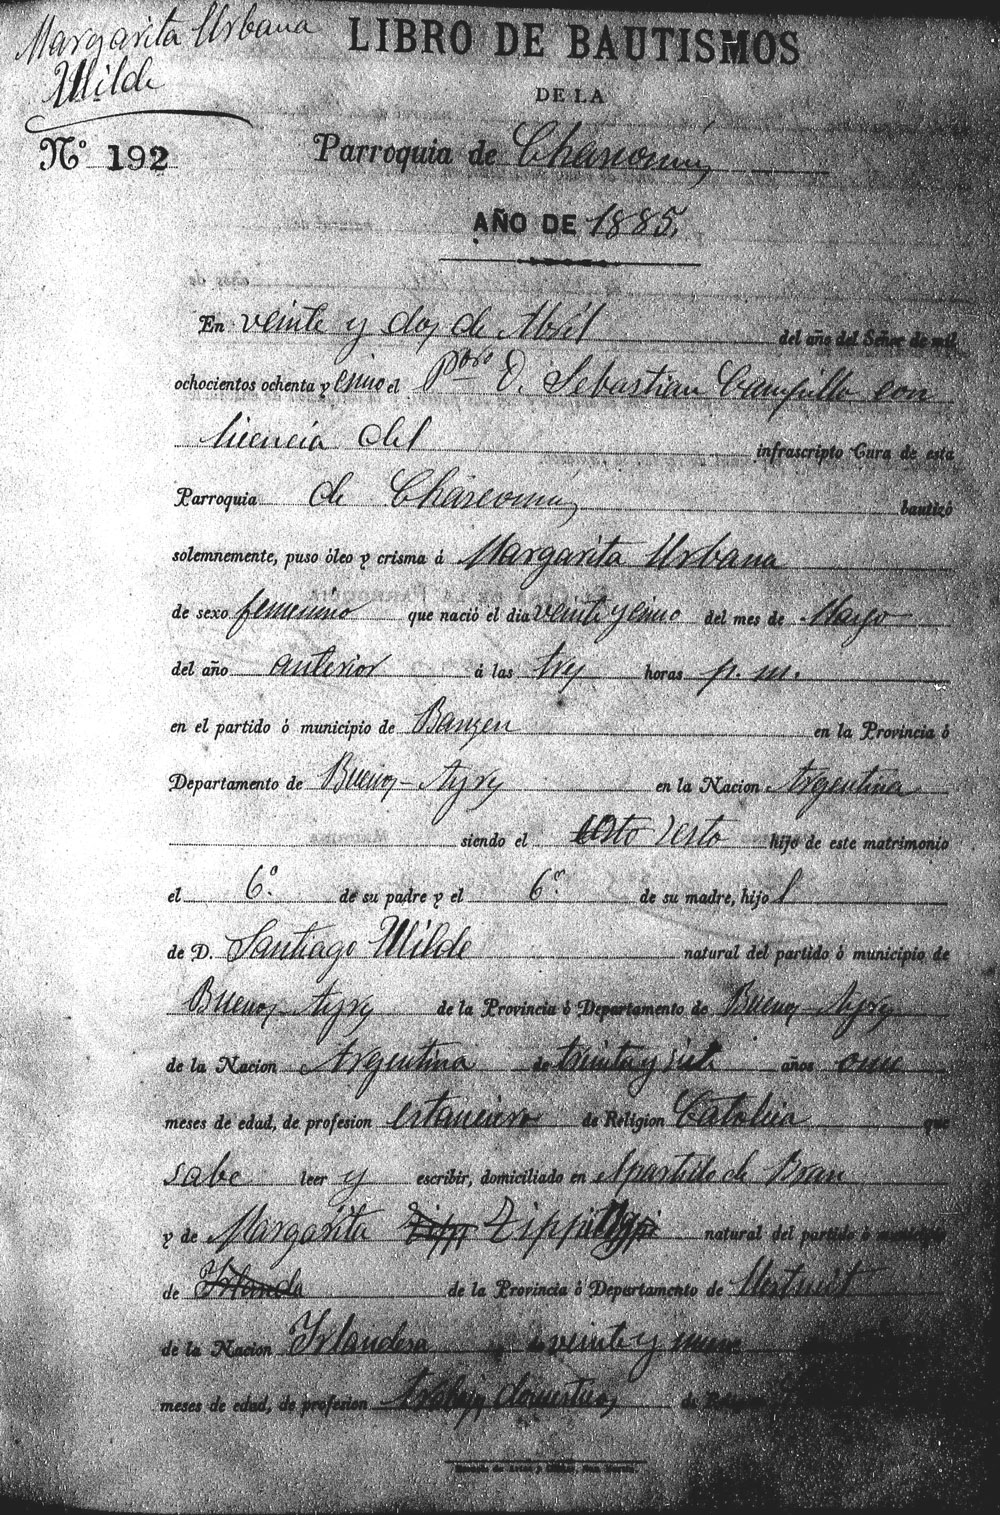 Margarita Urbana
Wilde
LIBRO DE BAUTISMOS
DE LA
Nº 192
Parroquia de Chascomús
AÑO DE 1885
En veinte y dos de Abril del año del Señor de mil
ochocientos ochenta y cinco el Pbro D. Sebastian Campillo con
licencia del infrascripto Cura de esta
Parroquia de Chascomús bautizó
solemnemente, puso óleo y crisma á Margarita Urbana
de sexo femenino que nació el dia veinte y cinco del mes de Mayo
del año anterior á las tres horas p. m.
en el partido ó municipio de en la Provincia ó
Departamento de Buenos-Ayres en la Nacion Argentina
siendo el sesto hijo de este matrimonio
el 6º. de su padre y el 6º. de su madre, hijo l
de D. Santiago Wilde natural del partido ó municipio de
Buenos-Ayres de la Provincia ó Departamento de Buenos-Ayres
de la Nacion Argentina de treinta y siete años once
meses de edad, de profesion estanciero de Religion Catolica que
sabe leer y escribir, domiciliado en el partido de
y de Margarita natural del partido ó municipio
de Irlanda de la Provincia ó Departamento de
de la Nacion Irlandesa de veinte y nueve
meses de edad, de profesion trabajos domesticos de Religion